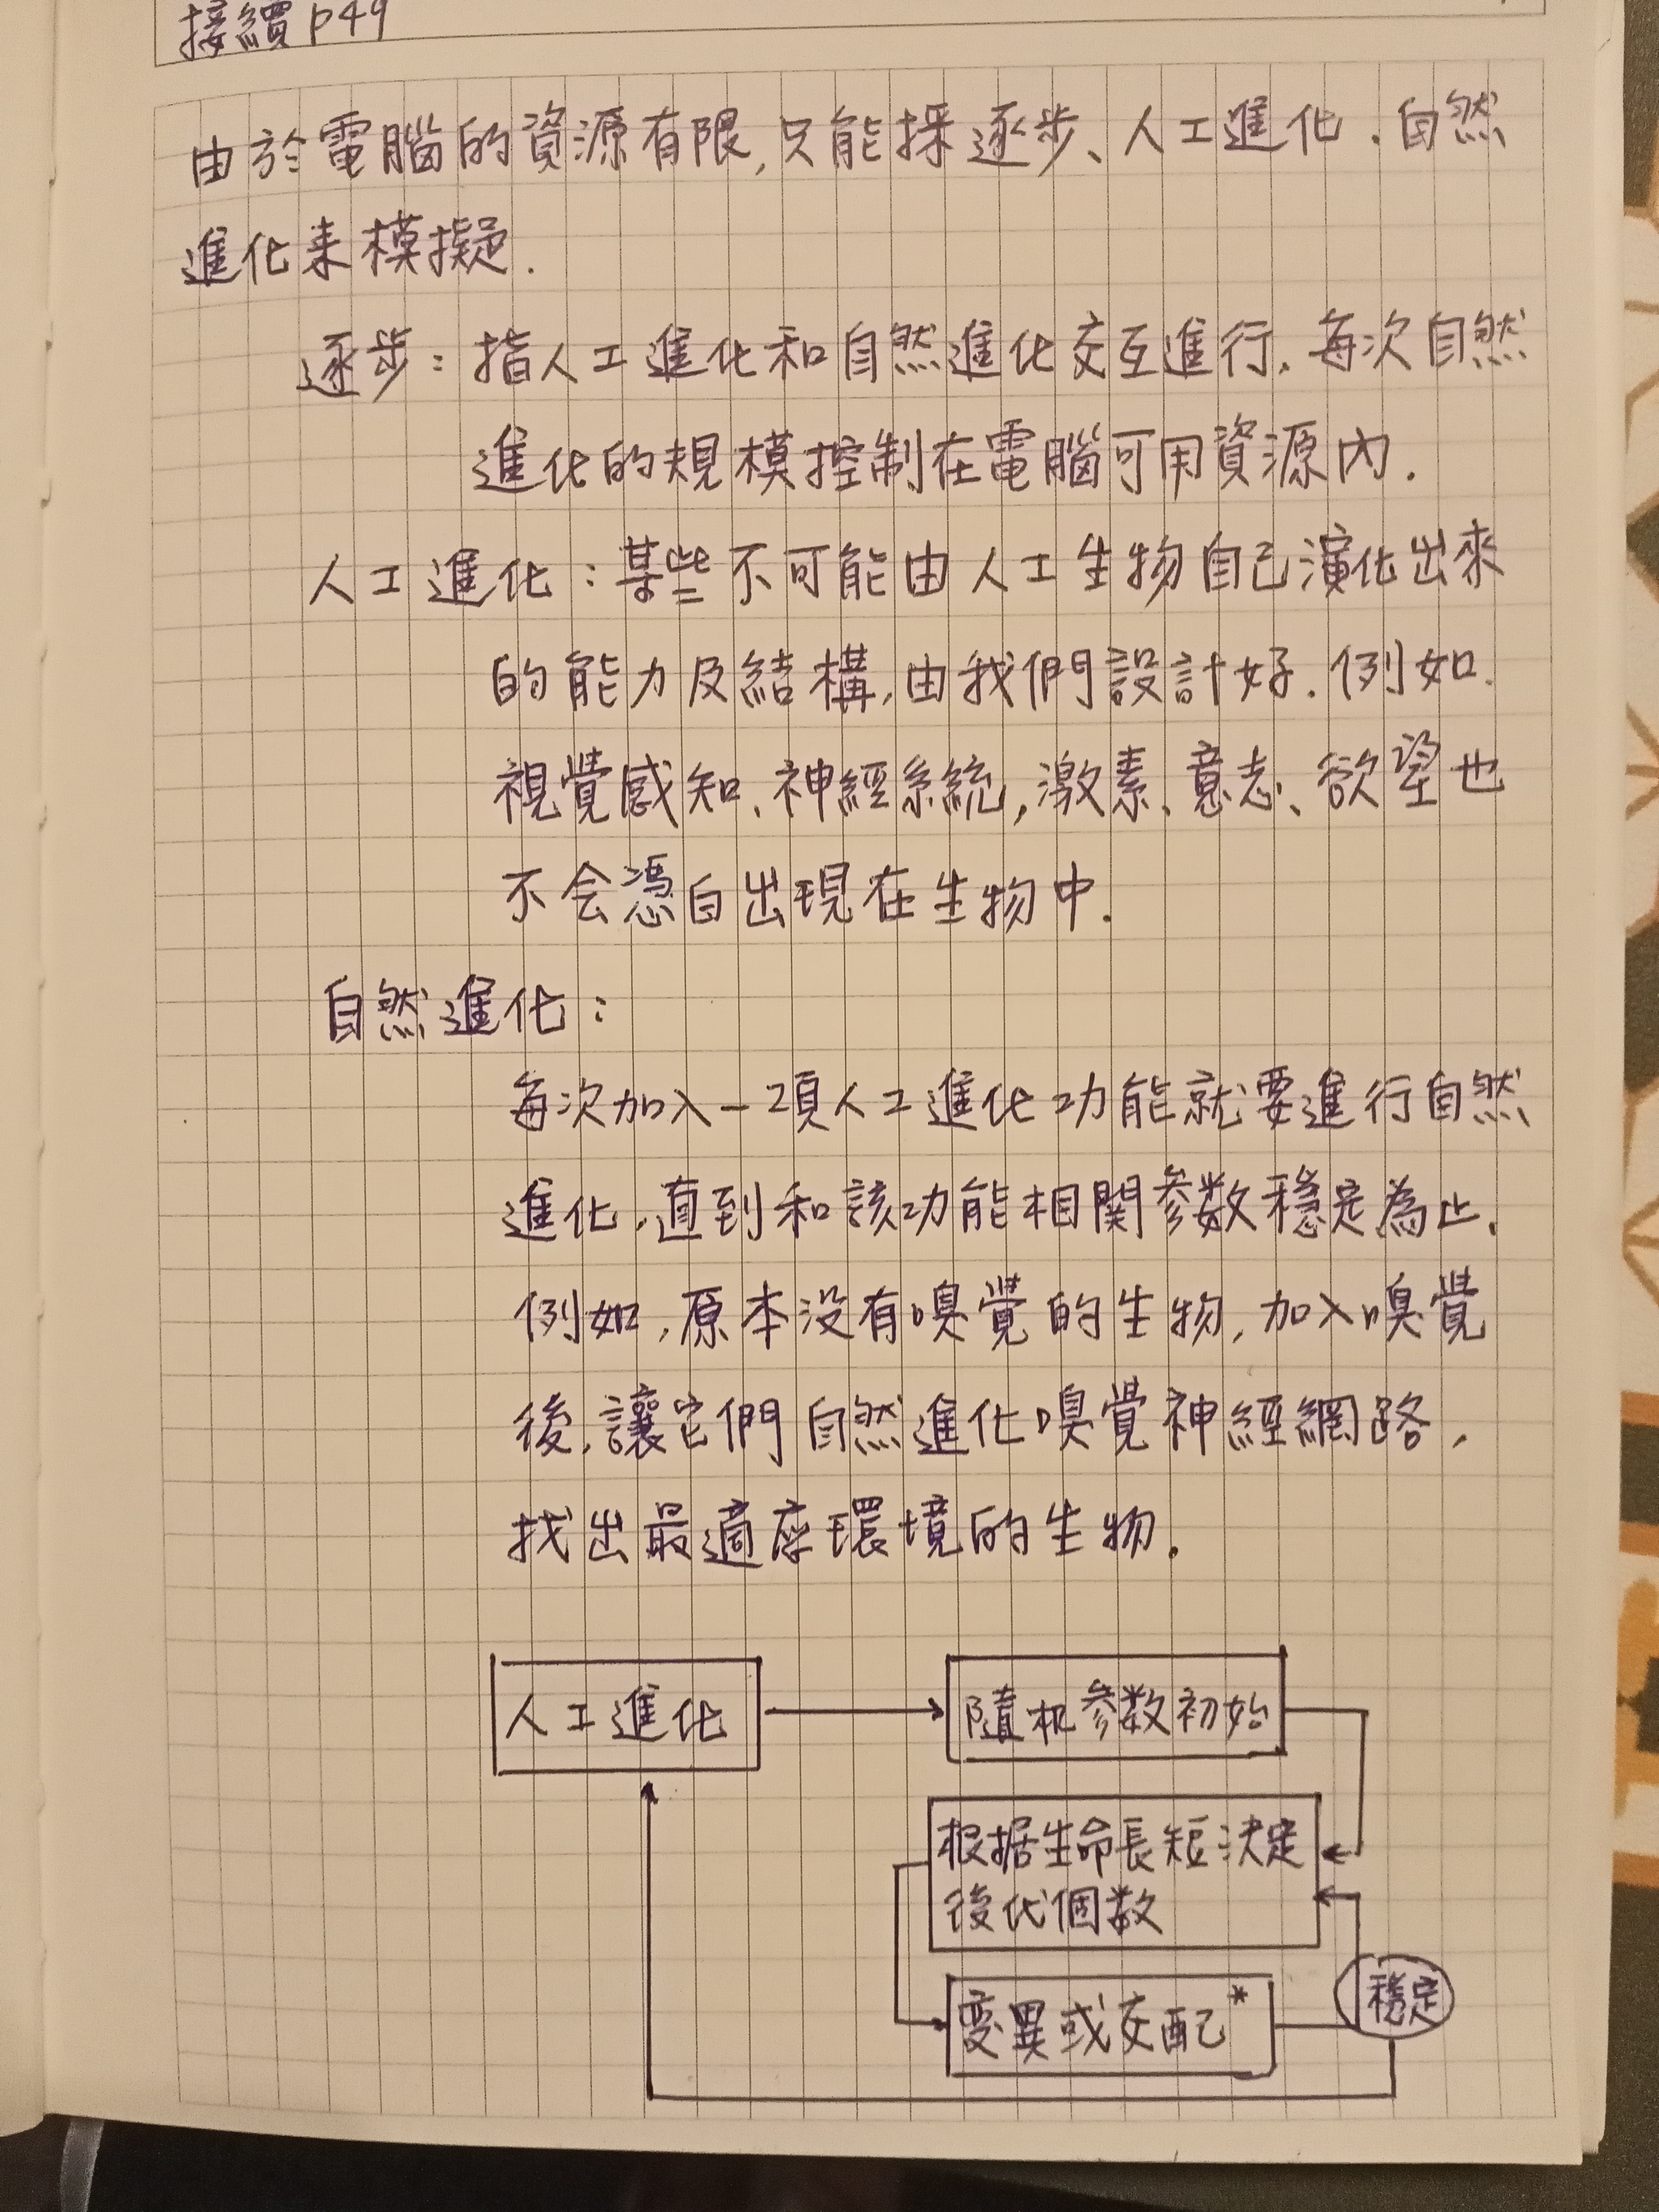 接續 p49
由於電腦的資源有限,只能採逐步、人工進化.自然
進化来模擬.
逐步:指人工進化和自然進化交互進行.每次自然
進化的規模控制在電腦可用資源內.
人工進化:某些不可能由人工生物自己演化出來
的能力及結構,由我們設計好.例如.
視覺感知、神經系統,激素、意志、欲望也
不会憑白出現在生物中.
自然進化:
每次加入一項人工進化功能就要進行自然
進化,直到和該功能相關参数穩定為止.
例如,原本没有嗅覺的生物,加入嗅覺
後,讓它們自然進化嗅覺神經網路,
找出最適應環境的生物.
人工進化
隨机参数初始
根据生命長短决定
後代個数
変異或交配*
穩定